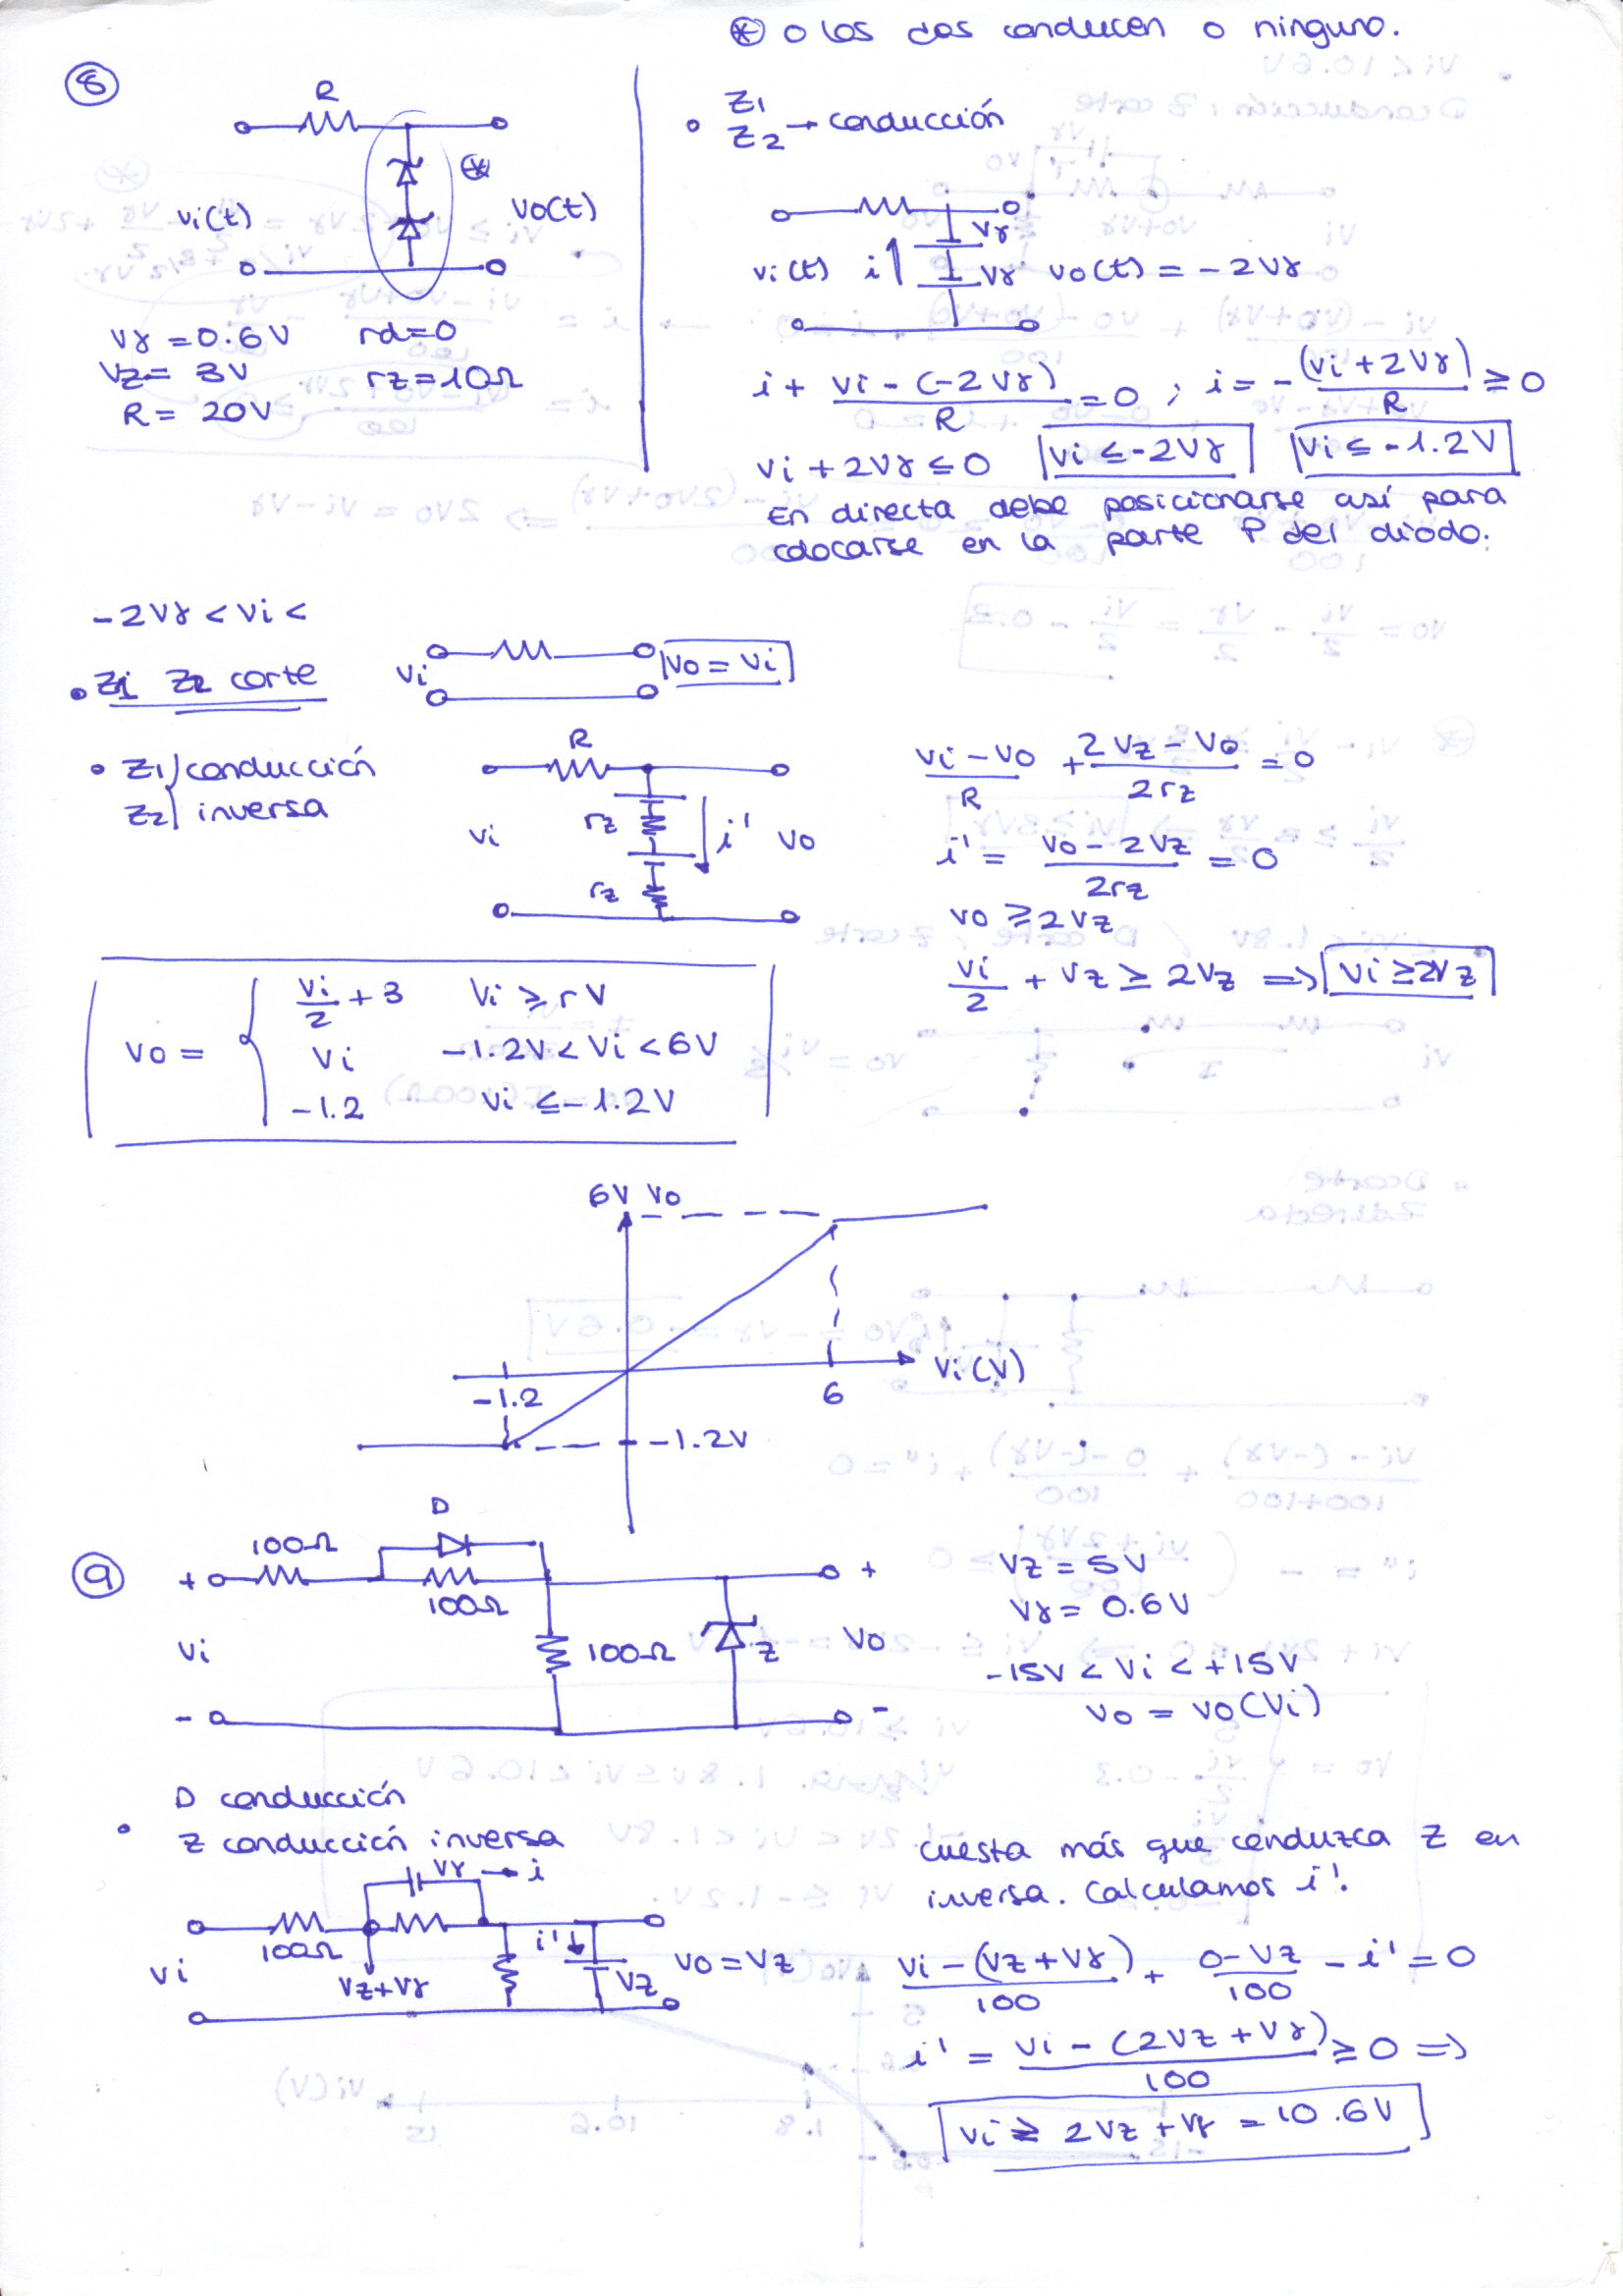 ⊛ o los dos conducen o ninguno.
⑧
R
⊛
vi(t)
vo(t)
Vγ = 0.6V rd=0
Vz= 3V rz=10Ω
R= 20V
• Z1
Z2 → conducción
Vγ
vi(t) i Vγ vo(t) = -2Vγ
i + (vi-(-2Vγ))/R = 0 ; i = -(vi+2Vγ)/R ≥ 0
vi + 2Vγ ≤ 0 vi ≤ -2Vγ vi ≤ -1.2V
En directa debe posicionarse así para
colocarse en la parte P del diodo.
-2Vγ < vi <
• Z1 Z2 corte
vi
vo = vi
• Z1 conducción
Z2 inversa
R
rz
vi i' vo
rz
(vi-vo)/R + (2Vz-vo)/2rz = 0
i' = (vo-2Vz)/2rz = 0
vo ≥ 2Vz
vi/2 + Vz ≥ 2Vz ⇒ vi ≥ 2Vz
vo = { vi/2 + 3 vi ≥ rV
vi -1.2V < vi < 6V
-1.2 vi ≤ -1.2V
6V vo
vi(V)
-1.2
6
-1.2V
⑨
100Ω
D
100Ω
+
+
vi
100Ω
Z
vo
-
-
Vz = 5V
Vγ = 0.6V
-15V < vi < +15V
vo = vo(vi)
D conducción
• Z conducción inversa
Vγ → i
100Ω
vi
Vz+Vγ
i'
Vz
vo = Vz
cuesta más que conduzca Z en
inversa. Calculamos i'.
(vi-(Vz+Vγ))/100 + (0-Vz)/100 - i' = 0
i' = (vi-(2Vz+Vγ))/100 ≥ 0 ⇒
vi ≥ 2Vz + Vγ = 10.6V